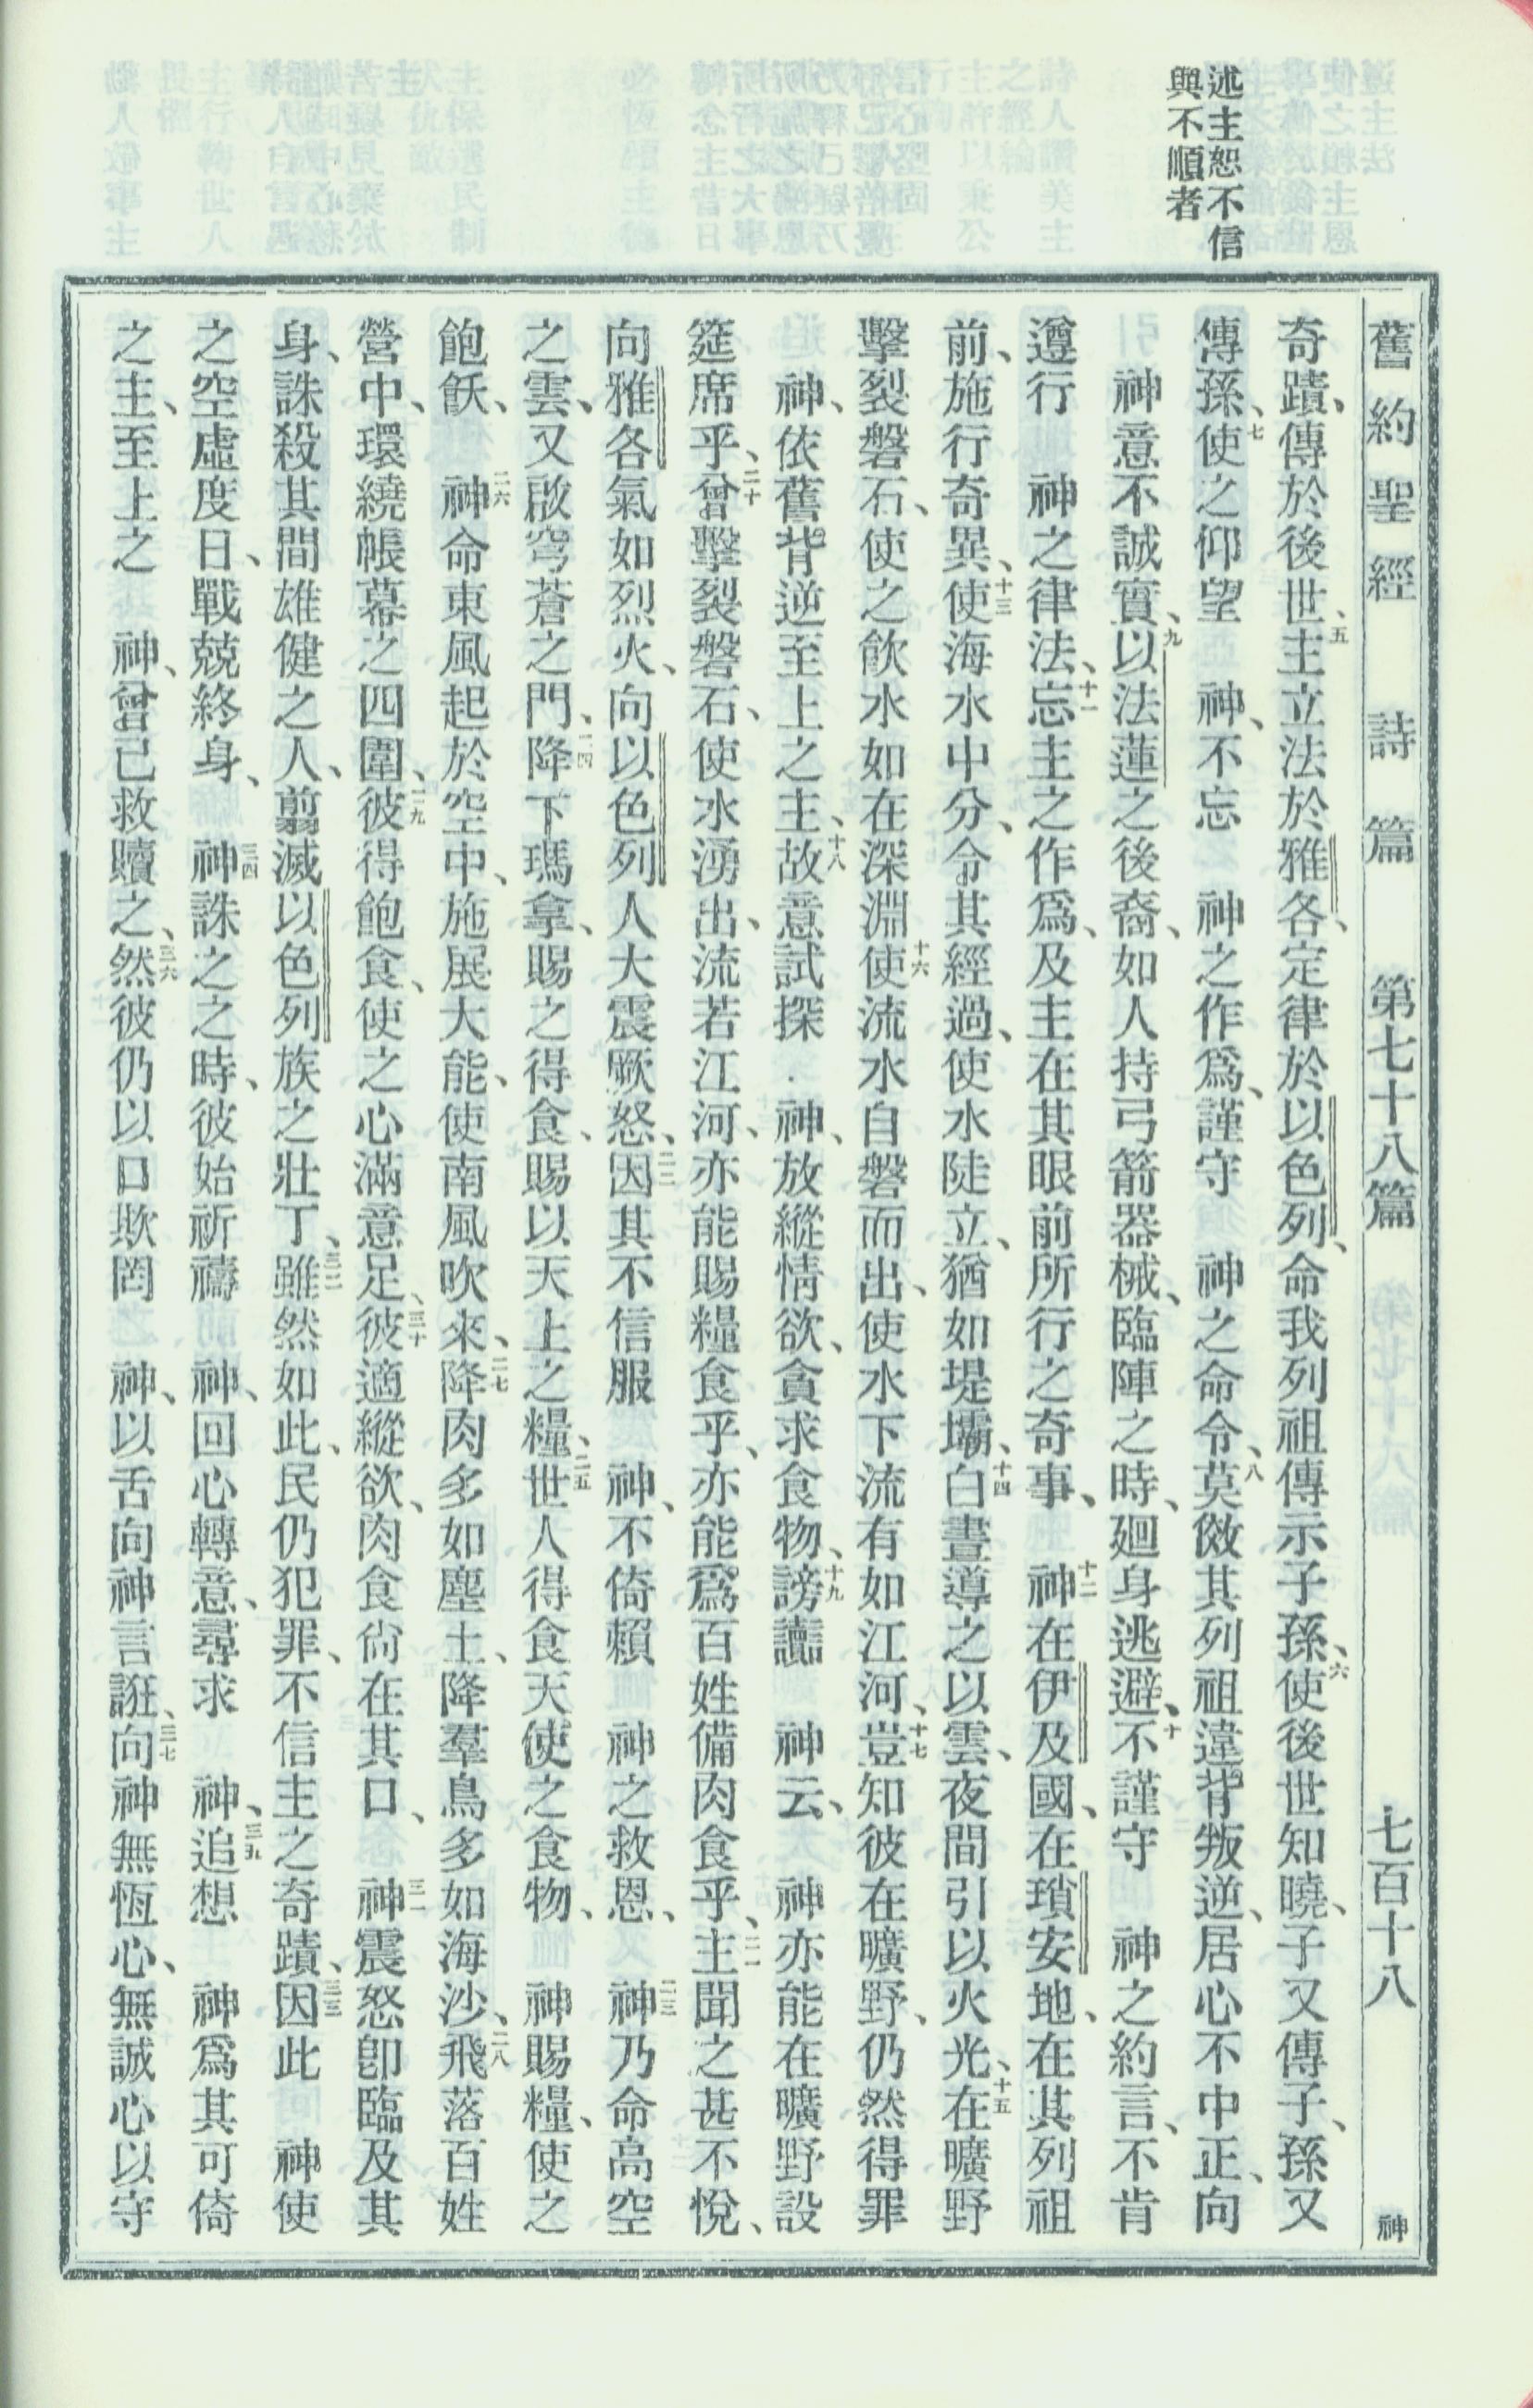 述主恕不信
與不順者
舊約聖經 詩篇 第七十八篇 七百十八 神
奇蹟、傳於後世、五主立法於雅各、定律於以色列、命我列祖傳示子孫、六使後世知曉、子又傳子、孫又
傳孫、七使之仰望 神、不忘 神之作爲、謹守 神之命令、八莫傚其列祖違背叛逆、居心不中正、向
神意不誠實、九以法蓮之後裔、如人持弓箭器械、臨陣之時、廻身逃避、十不謹守 神之約言、不肯
遵行 神之律法、十一忘主之作爲、及主在其眼前所行之奇事、十二神在伊及國、在瑣安地、在其列祖
前、施行奇異、十三使海水中分、令其經過、使水陡立、猶如堤壩、十四白晝導之以雲、夜間引以火光、十五在曠野
擊裂磐石、使之飲水如在深淵、十六使流水自磐而出、使水下流有如江河、十七豈知彼在曠野、仍然得罪
神、依舊背逆至上之主、十八故意試探 神、放縱情欲、貪求食物、十九謗讟 神云、 神亦能在曠野設
筵席乎、二十曾擊裂磐石、使水湧出、流若江河、亦能賜糧食乎、亦能爲百姓備肉食乎、二一主聞之甚不悅、
向雅各氣如烈火、向以色列人大震厥怒、二二因其不信服 神、不倚賴 神之救恩、二三神乃命高空
之雲、又啟穹蒼之門、二四降下瑪拿、賜之得食、賜以天上之糧、二五世人得食天使之食物、 神賜糧、使之
飽飫、二六神命東風起於空中、施展大能、使南風吹來、二七降肉多如塵土、降羣鳥多如海沙、二八飛落百姓
營中、環繞帳幕之四圍、二九彼得飽食、使之心滿意足、三十彼適縱欲、肉食尙在其口、三一神震怒卽臨及其
身、誅殺其間雄健之人、翦滅以色列族之壯丁、三二雖然如此、民仍犯罪、不信主之奇蹟、三三因此 神使
之空虛度日、戰兢終身、三四神誅之之時、彼始祈禱 神、回心轉意、尋求 神、三五追想 神爲其可倚
之主、至上之 神、曾已救贖之、三六然彼仍以口欺罔 神、以舌向神言誑、三七向神無恆心、無誠心以守